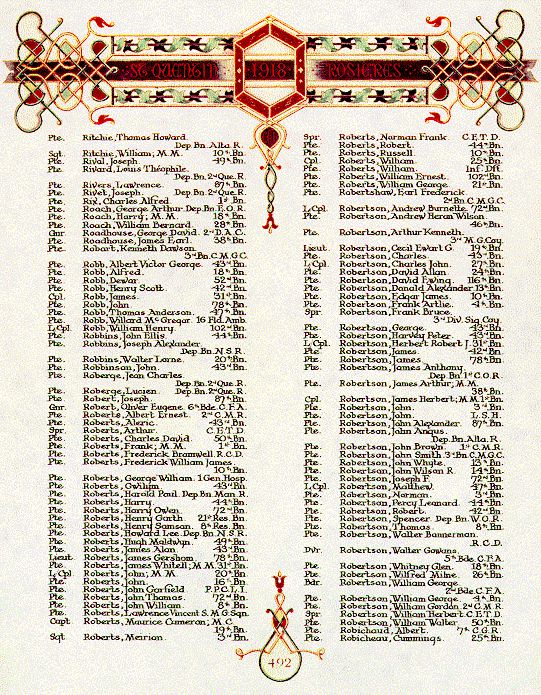 ST QUENTIN 1918 ROSIERES
Pte. Ritchie, Thomas Howard.
Dep. Bn. Alta. R.
Sgt. Ritchie, William; M.M. 10th Bn.
Pte. Rival, Joseph. 49th Bn.
Pte. Rivard, Louis Théophile.
Dep. Bn. 2nd Que. R.
Pte. Rivers, Lawrence. 87th Bn.
Pte. Rivet, Joseph. Dep. Bn. 2nd Que. R.
Pte. Rix, Charles Alfred. 1st Bn.
Pte. Roach, George Arthur. Dep. Bn. E.O.R.
Pte. Roach, Harry; M.M. 18th Bn.
Pte. Roach, William Bernard. 28th Bn.
Gnr. Roadhouse, George David. 2nd D.A.C.
Pte. Roadhouse, James Earl. 38th Bn.
Pte. Robart, Kenneth Dawson.
3rd Bn. C.M.G.C.
Pte. Robb, Albert Victor George. 43rd Bn.
Pte. Robb, Alfred. 18th Bn.
Pte. Robb, Dewar. 52nd Bn.
Pte. Robb, Henry Scott. 42nd Bn.
Cpl. Robb, James. 31st Bn.
Pte. Robb, John. 78th Bn.
Pte. Robb, Thomas Anderson. 47th Bn.
Pte. Robb, Willard McGregor. 16 Fld. Amb.
L/Cpl. Robb, William Henry. 102nd Bn.
Pte. Robbins, John Ellis. 44th Bn.
Pte. Robbins, Joseph Alexander.
Dep. Bn. N.S.R.
Pte. Robbins, Walter Lorne. 20th Bn.
Pte. Robbinson, John. 43rd Bn.
Pte. Roberge, Jean Charles.
Dep. Bn. 2nd Que. R.
Pte. Roberge, Lucien. Dep. Bn. 2nd Que. R.
Pte. Robert, Joseph. 87th Bn.
Gnr. Robert, Oliver Eugene. 6th Bde. C.F.A.
Pte. Roberts, Albert Ernest. 2nd C.M.R.
Pte. Roberts, Aleric. 43rd Bn.
Spr. Roberts, Arthur. C.E.T.D.
Pte. Roberts, Charles David. 50th Bn.
Pte. Roberts, Frank; M.M. 1st Bn.
Pte. Roberts, Frederick Bramwell. R.C.D.
Pte. Roberts, Frederick William James
10th Bn.
Pte. Roberts, George William. 1 Gen. Hosp.
Pte. Roberts, Gwilym. 43rd Bn.
Pte. Roberts, Harold Paul. Dep. Bn. Man. R.
Pte. Roberts, Harry. 44th Bn.
Pte. Roberts, Harry Owen. 72nd Bn.
Pte. Roberts, Henry Garth. 21st Res. Bn.
Pte. Roberts, Henry Samson. 8th Res. Bn.
Pte. Roberts, Howard Lee. Dep. Bn. N.S.R.
Pte. Roberts, Hugh Maldwyn. 49th Bn.
Pte. Roberts, James Alan. 43rd Bn.
Lieut. Roberts, James Gershom. 78th Bn.
Pte. Roberts, James Whitell; M.M. 31st Bn.
L/Cpl. Roberts, John; M.M. 20th Bn.
Pte. Roberts, John. 16th Bn.
Pte. Roberts, John Garfield. P.P.C.L.I.
Pte. Roberts, John Thomas. 72nd Bn.
Pte. Roberts, John William. 8th Bn.
Pte. Roberts, Lawrence Vincent. S.M.G. Sqn.
Capt. Roberts, Maurice Cameron; M.C.
19th Bn.
Sgt. Roberts, Meirion. 3rd Bn.
Spr. Roberts, Norman Frank. C.E.T.D.
Pte. Roberts, Robert. 44th Bn.
Pte. Roberts, Russell. 10th Bn.
Cpl. Roberts, William. 25th Bn.
Pte. Roberts, William. Inf. Dft.
Pte. Roberts, William Ernest. 102nd Bn.
Pte. Roberts, William George. 21st Bn.
Pte. Robertshaw, Earl Frederick
2nd Bn. C.M.G.C.
L/Cpl. Robertson, Andrew Burnette. 72nd Bn.
Pte. Robertson, Andrew Heran Wilson.
46th Bn.
Pte. Robertson, Arthur Kenneth.
3rd M.G. Coy.
Lieut. Robertson, Cecil Ewart G. 19th Bn.
Pte. Robertson, Charles. 43rd Bn.
L/Cpl. Robertson, Charles John. 27th Bn.
Pte. Robertson, David Allan. 24th Bn.
Pte. Robertson, David Ewing. 116th Bn.
Pte. Robertson, Donald Alexander. 13th Bn.
Pte. Robertson, Edgar James. 10th Bn.
Pte. Robertson, Frank Artlie. 4th Bn.
Spr. Robertson, Frank Bruce.
3rd Div. Sig. Coy.
Pte. Robertson, George. 43rd Bn.
Pte. Robertson, Harvey Peter. 43rd Bn.
L/Cpl. Robertson, Herbert Robert J. 31st Bn.
Pte. Robertson, James. 42nd Bn.
Pte. Robertson, James. 78th Bn.
Pte. Robertson, James Anthony.
Dep. Bn. 1st C.O.R.
Pte. Robertson, James Arthur; M.M.
38th Bn.
Cpl. Robertson, James Herbert; M.M. 1st Bn.
Pte. Robertson, John. 3rd Bn.
Pte. Robertson, John. L.S.H.
Pte. Robertson, John Alexander. 87th Bn.
Pte. Robertson, John Angus.
Dep. Bn. Alta. R.
Pte. Robertson, John Brown. 1st C.M.R.
Pte. Robertson, John Smith. 3rd Bn. C.M.G.C.
Pte. Robertson, John Whyte. 13th Bn.
Pte. Robertson, John Wilson R. 14th Bn.
Pte. Robertson, Joseph F. 72nd Bn.
L/Cpl. Robertson, Matthew. 47th Bn.
Pte. Robertson, Norman. 3rd Bn.
Pte. Robertson, Percy Leonard. 44th Bn.
Pte. Robertson, Robert. 42nd Bn.
Pte. Robertson, Spencer. Dep. Bn. W.O.R.
Pte. Robertson, Thomas. 8th Bn.
Pte. Robertson, Walter Bannerman.
R.C.D.
Dvr. Robertson, Walter Gowans.
5th Bde. C.F.A.
Pte. Robertson, Whitney Glen. 18th Bn.
Pte. Robertson, Wilfred Milne. 26th Bn.
Bdr. Robertson, William George.
2nd Bde. C.F.A.
Pte. Robertson, William George. 4th Bn.
Pte. Robertson, William Gordon. 2nd C.M.R.
Spr. Robertson, William Herbert. C.E.T.D.
Pte. Robertson, William Walter. 50th Bn.
Pte. Robichaud, Albert. 7th C.G.R.
Pte. Robicheau, Cummings. 25th Bn.
492